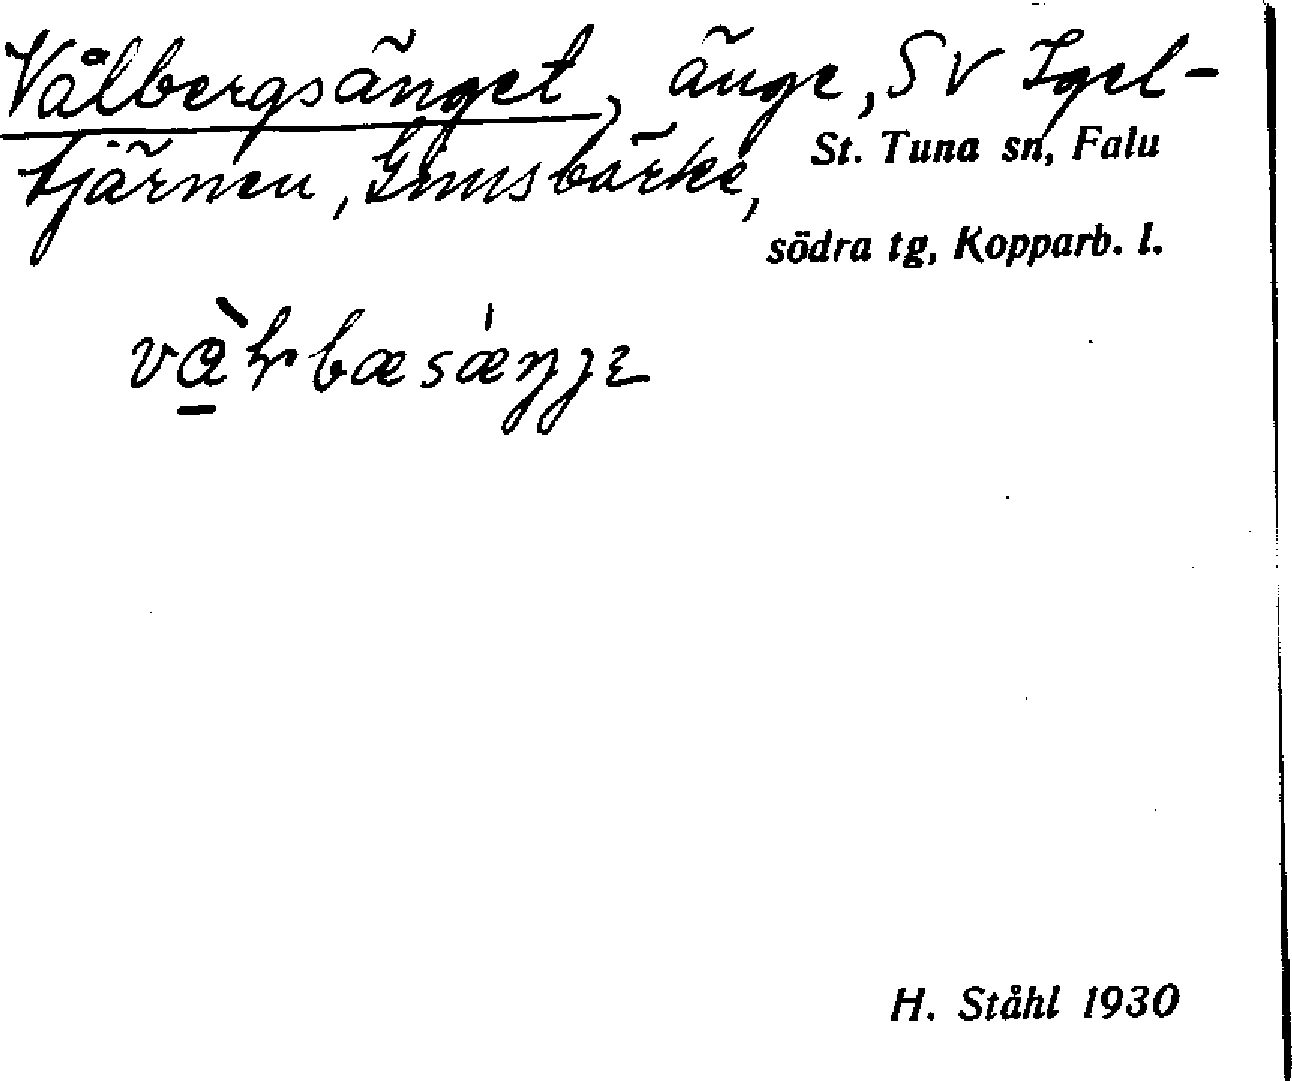 Vålbergsänget, änge, SV Igel-
tjärnen, Ginsbärke,
St. Tuna sn, Falu
södra tg, Kopparb. l.
H. Ståhl 1930